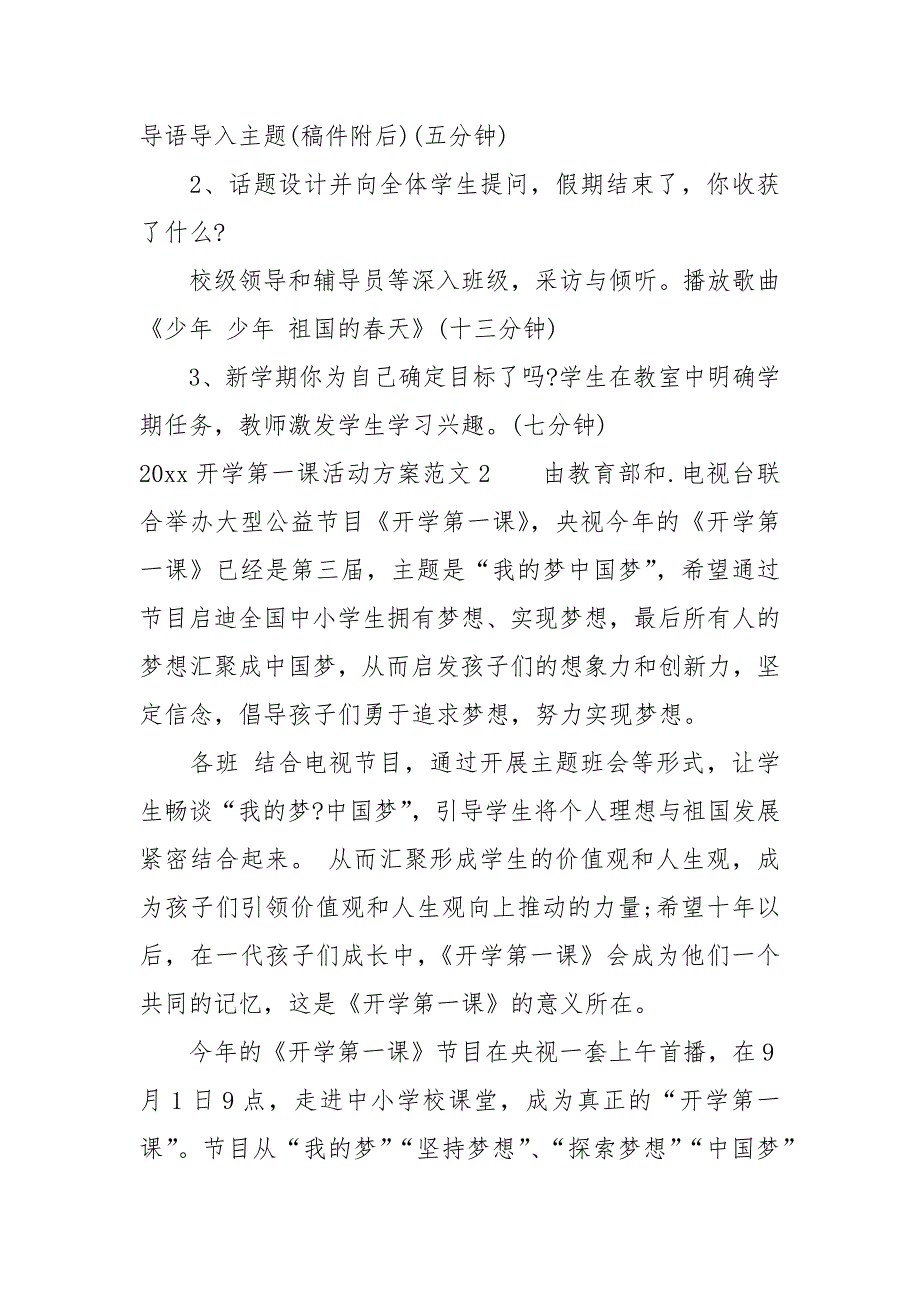 导语导入主题(稿件附后)(五分钟)
2、话题设计并向全体学生提问，假期结束了，你收获
了什么?
校级领导和辅导员等深入班级，采访与倾听。播放歌曲
《少年 少年 祖国的春天》(十三分钟)
3、新学期你为自己确定目标了吗?学生在教室中明确学
期任务，教师激发学生学习兴趣。(七分钟)
20xx 开学第一课活动方案范文 2 由教育部和.电视台联
合举办大型公益节目《开学第一课》，央视今年的《开学第
一课》已经是第三届，主题是“我的梦中国梦”，希望通过
节目启迪全国中小学生拥有梦想、实现梦想，最后所有人的
梦想汇聚成中国梦，从而启发孩子们的想象力和创新力，坚
定信念，倡导孩子们勇于追求梦想，努力实现梦想。
各班 结合电视节目，通过开展主题班会等形式，让学
生畅谈“我的梦?中国梦”，引导学生将个人理想与祖国发展
紧密结合起来。 从而汇聚形成学生的价值观和人生观，成
为孩子们引领价值观和人生观向上推动的力量;希望十年以
后，在一代孩子们成长中，《开学第一课》会成为他们一个
共同的记忆，这是《开学第一课》的意义所在。
今年的《开学第一课》节目在央视一套上午首播，在 9
月 1 日 9 点，走进中小学校课堂，成为真正的“开学第一
课”。节目从“我的梦”“坚持梦想”、“探索梦想”“中国梦”